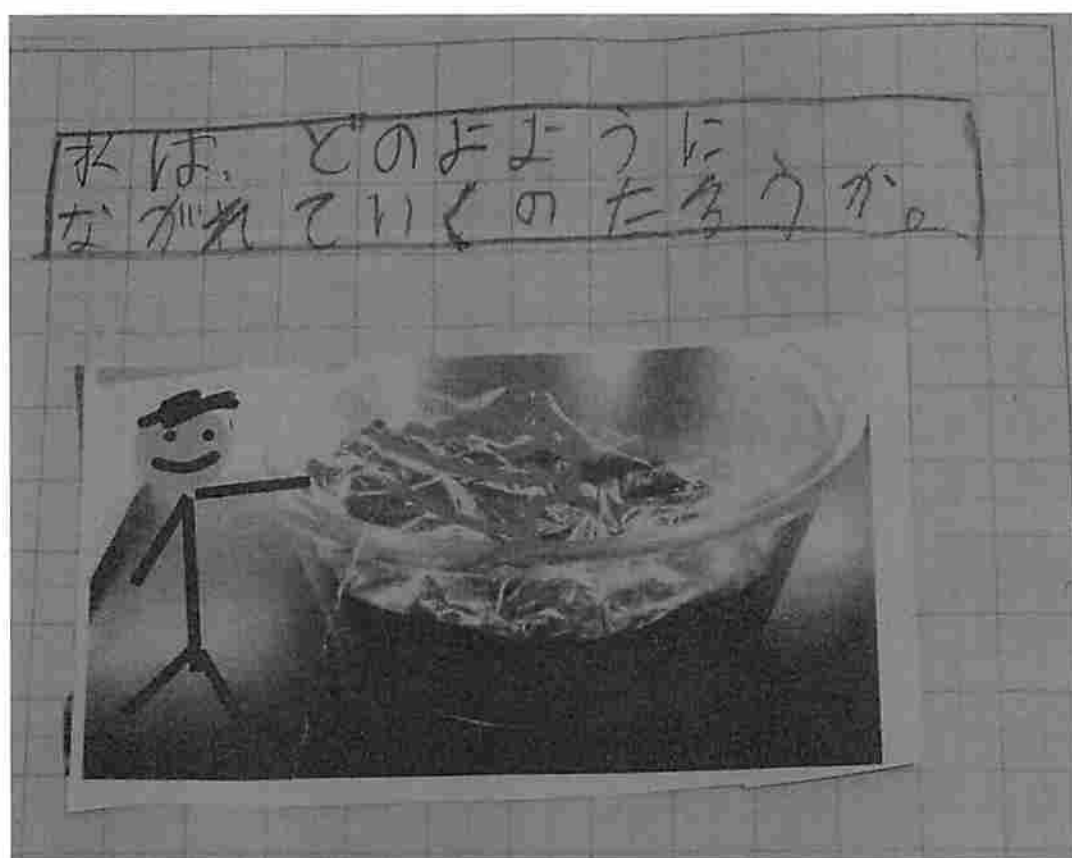 水は、どのよように
ながれていくのたろうか。